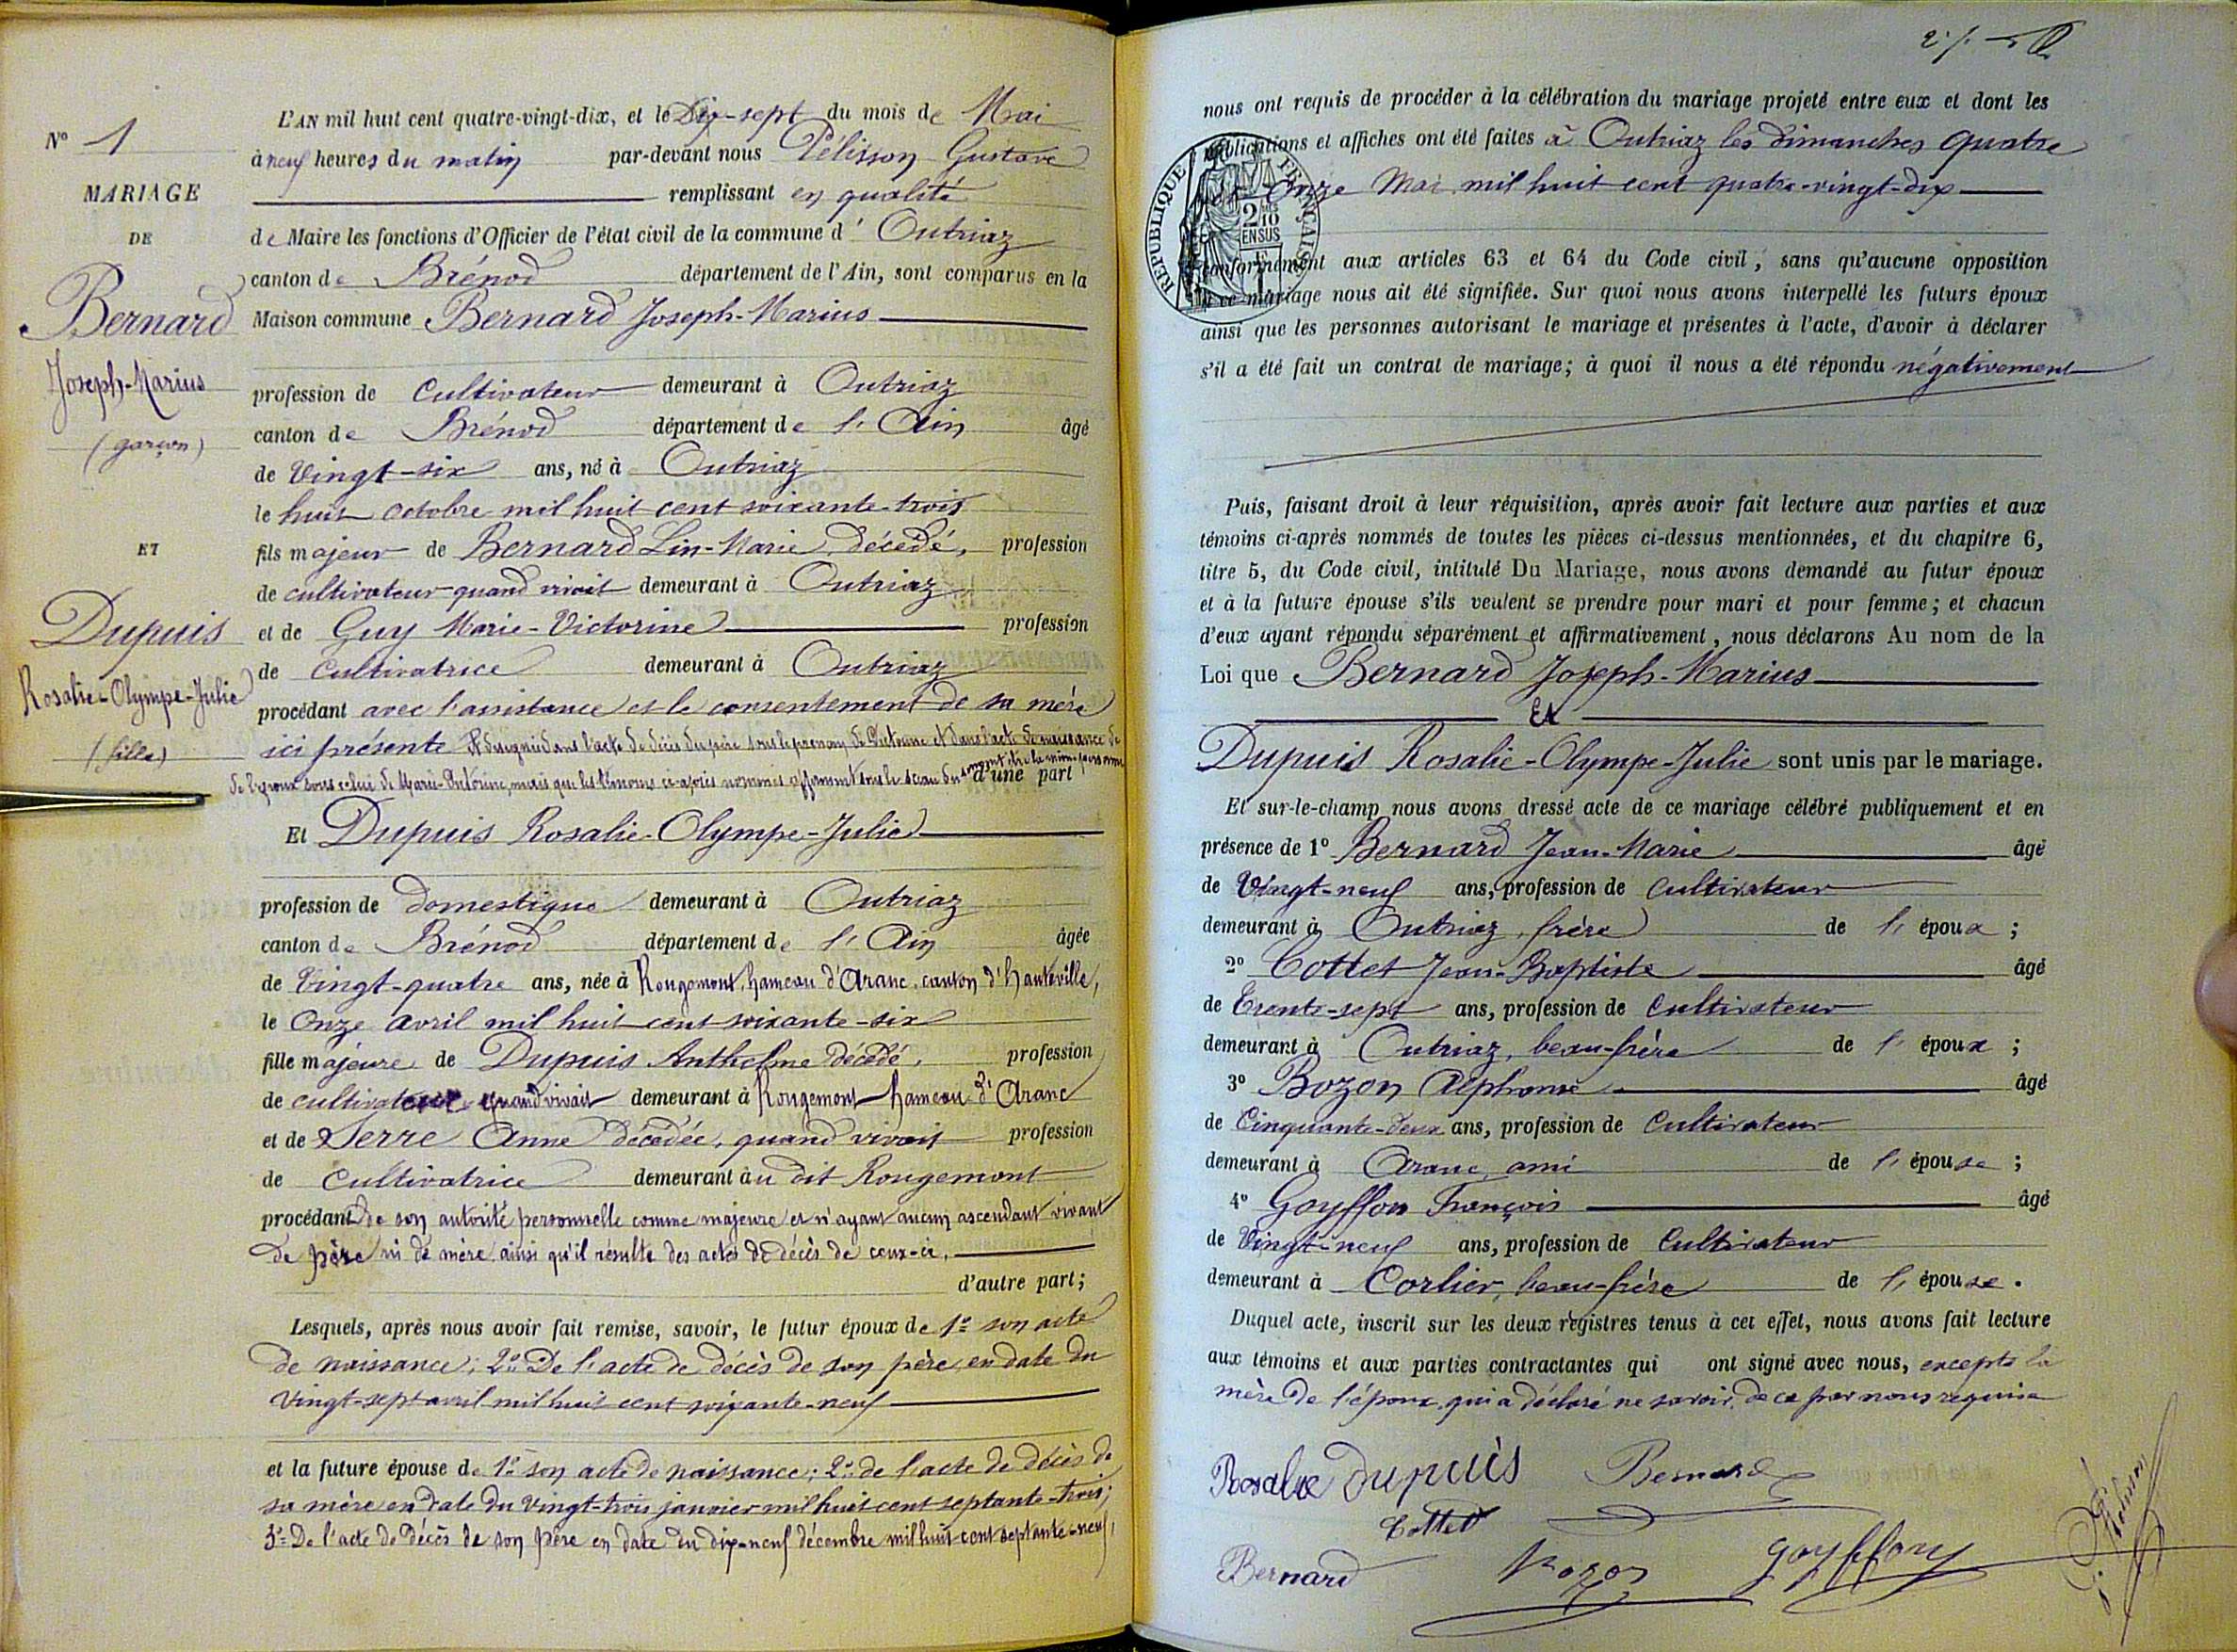 N° 1
MARIAGE
DE
Bernard
Joseph-Marius
(garçon)
ET
Dupuis
Rosalie-Olympe-Julie
(fille)
L'AN mil huit cent quatre-vingt-dix, et le Dix-sept du mois de Mai
à neuf heures du matin par-devant nous Pélisson Gustave
remplissant en qualité
de Maire les fonctions d'Officier de l'état civil de la commune d' Outriaz
canton de Brénod département de l'Ain, sont comparus en la
Maison commune Bernard Joseph-Marius
profession de Cultivateur demeurant à Outriaz
canton de Brénod département de l'Ain âgé
de Vingt-six ans, né à Outriaz
le huit octobre mil huit cent soixante-trois
fils majeur de Bernard Lin-Marie, décédé, profession
de cultivateur quand vivait demeurant à Outriaz
et de Guy Marie-Victorine profession
de Cultivatrice demeurant à Outriaz
procédant avec l'assistance et le consentement de sa mère
ici présente et désignée dans l'acte de décès du père sous le prénom de Victorine et dans l'acte de naissance de
de l'époux sous celui de Marie-Victorine, mais que les témoins ci-après nommés affirment sous le sceau du serment être la même personne d'une part
Et Dupuis Rosalie-Olympe-Julie
profession de domestique demeurant à Outriaz
canton de Brénod département de l'Ain âgée
de Vingt-quatre ans, née à Rougemont, hameau d'Aranc, canton d'hauteville,
le Onze avril mil huit cent soixante-six
fille majeure de Dupuis Anthelme décédé, profession
de cultivateur quand vivait demeurant à Rougemont hameau d'Aranc
et de Serre Anne décédée, quand vivait profession
de Cultivatrice demeurant au dit Rougemont
procédant de son autorité personnelle comme majeure et n'ayant aucun ascendant vivant
de père ni de mère ainsi qu'il résulte des actes de décès de ceux-ci,
d'autre part;
Lesquels, après nous avoir fait remise, savoir, le futur époux de 1° son acte
de naissance; 2° De l'acte de décès de son père en date du
vingt-sept avril mil huit cent soixante-neuf
et la future épouse de 1° son acte de naissance; 2° de l'acte de décès de
sa mère en date du vingt-trois janvier mil huit cent septante-trois;
3° De l'acte de décès de son père en date du dix-neuf décembre mil huit cent septante-neuf,
nous ont requis de procéder à la célébration du mariage projeté entre eux et dont les
publications et affiches ont été faites à Outriaz les dimanches quatre
et Onze Mai mil huit cent quatre-vingt-dix
RÉPUBLIQUE FRANÇAISE
2 MES 10 EN SUS
conformément aux articles 63 et 64 du Code civil, sans qu'aucune opposition
à ce mariage nous ait été signifiée. Sur quoi nous avons interpellé les futurs époux
ainsi que les personnes autorisant le mariage et présentes à l'acte, d'avoir à déclarer
s'il a été fait un contrat de mariage; à quoi il nous a été répondu négativement
Puis, faisant droit à leur réquisition, après avoir fait lecture aux parties et aux
témoins ci-après nommés de toutes les pièces ci-dessus mentionnées, et du chapitre 6,
titre 5, du Code civil, intitulé Du Mariage, nous avons demandé au futur époux
et à la future épouse s'ils veulent se prendre pour mari et pour femme; et chacun
d'eux ayant répondu séparément et affirmativement, nous déclarons Au nom de la
Loi que Bernard Joseph-Marius
Et
Dupuis Rosalie-Olympe-Julie sont unis par le mariage.
Et sur-le-champ nous avons dressé acte de ce mariage célébré publiquement et en
présence de 1° Bernard Jean-Marie âgé
de Vingt-neuf ans, profession de Cultivateur
demeurant à Outriaz, frère de l'époux;
2° Cottet Jean-Baptiste âgé
de Trente-sept ans, profession de Cultivateur
demeurant à Outriaz, beau-frère de l'époux;
3° Bozon Alphonse âgé
de Cinquante-deux ans, profession de Cultivateur
demeurant à Aranc ami de l'épouse;
4° Goyffon François âgé
de Vingt-neuf ans, profession de Cultivateur
demeurant à Corlier, beau-frère de l'épouse.
Duquel acte, inscrit sur les deux registres tenus à cet effet, nous avons fait lecture
aux témoins et aux parties contractantes qui ont signé avec nous, excepté la
mère de l'époux qui a déclaré ne savoir, de ce par nous requise
Rosalie dupuis Bernard
Cottet
Bernard Bozon goyffon
G. Pélisson